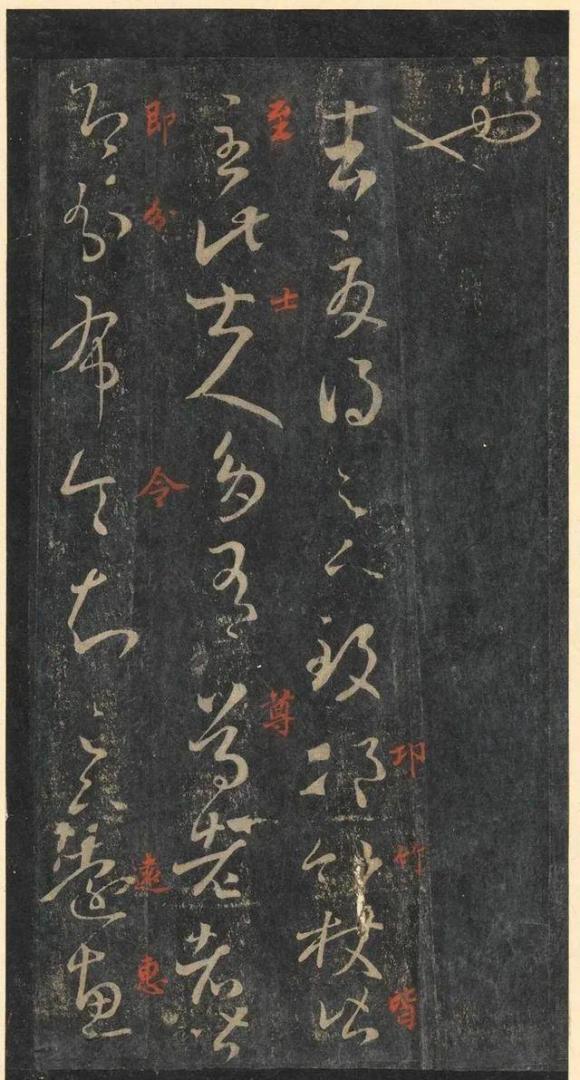 邛竹皆
去夏得足下致邛竹杖皆
至士尊
至此士人多有尊老者皆
即分令遠惠
即分布令知足下遠惠